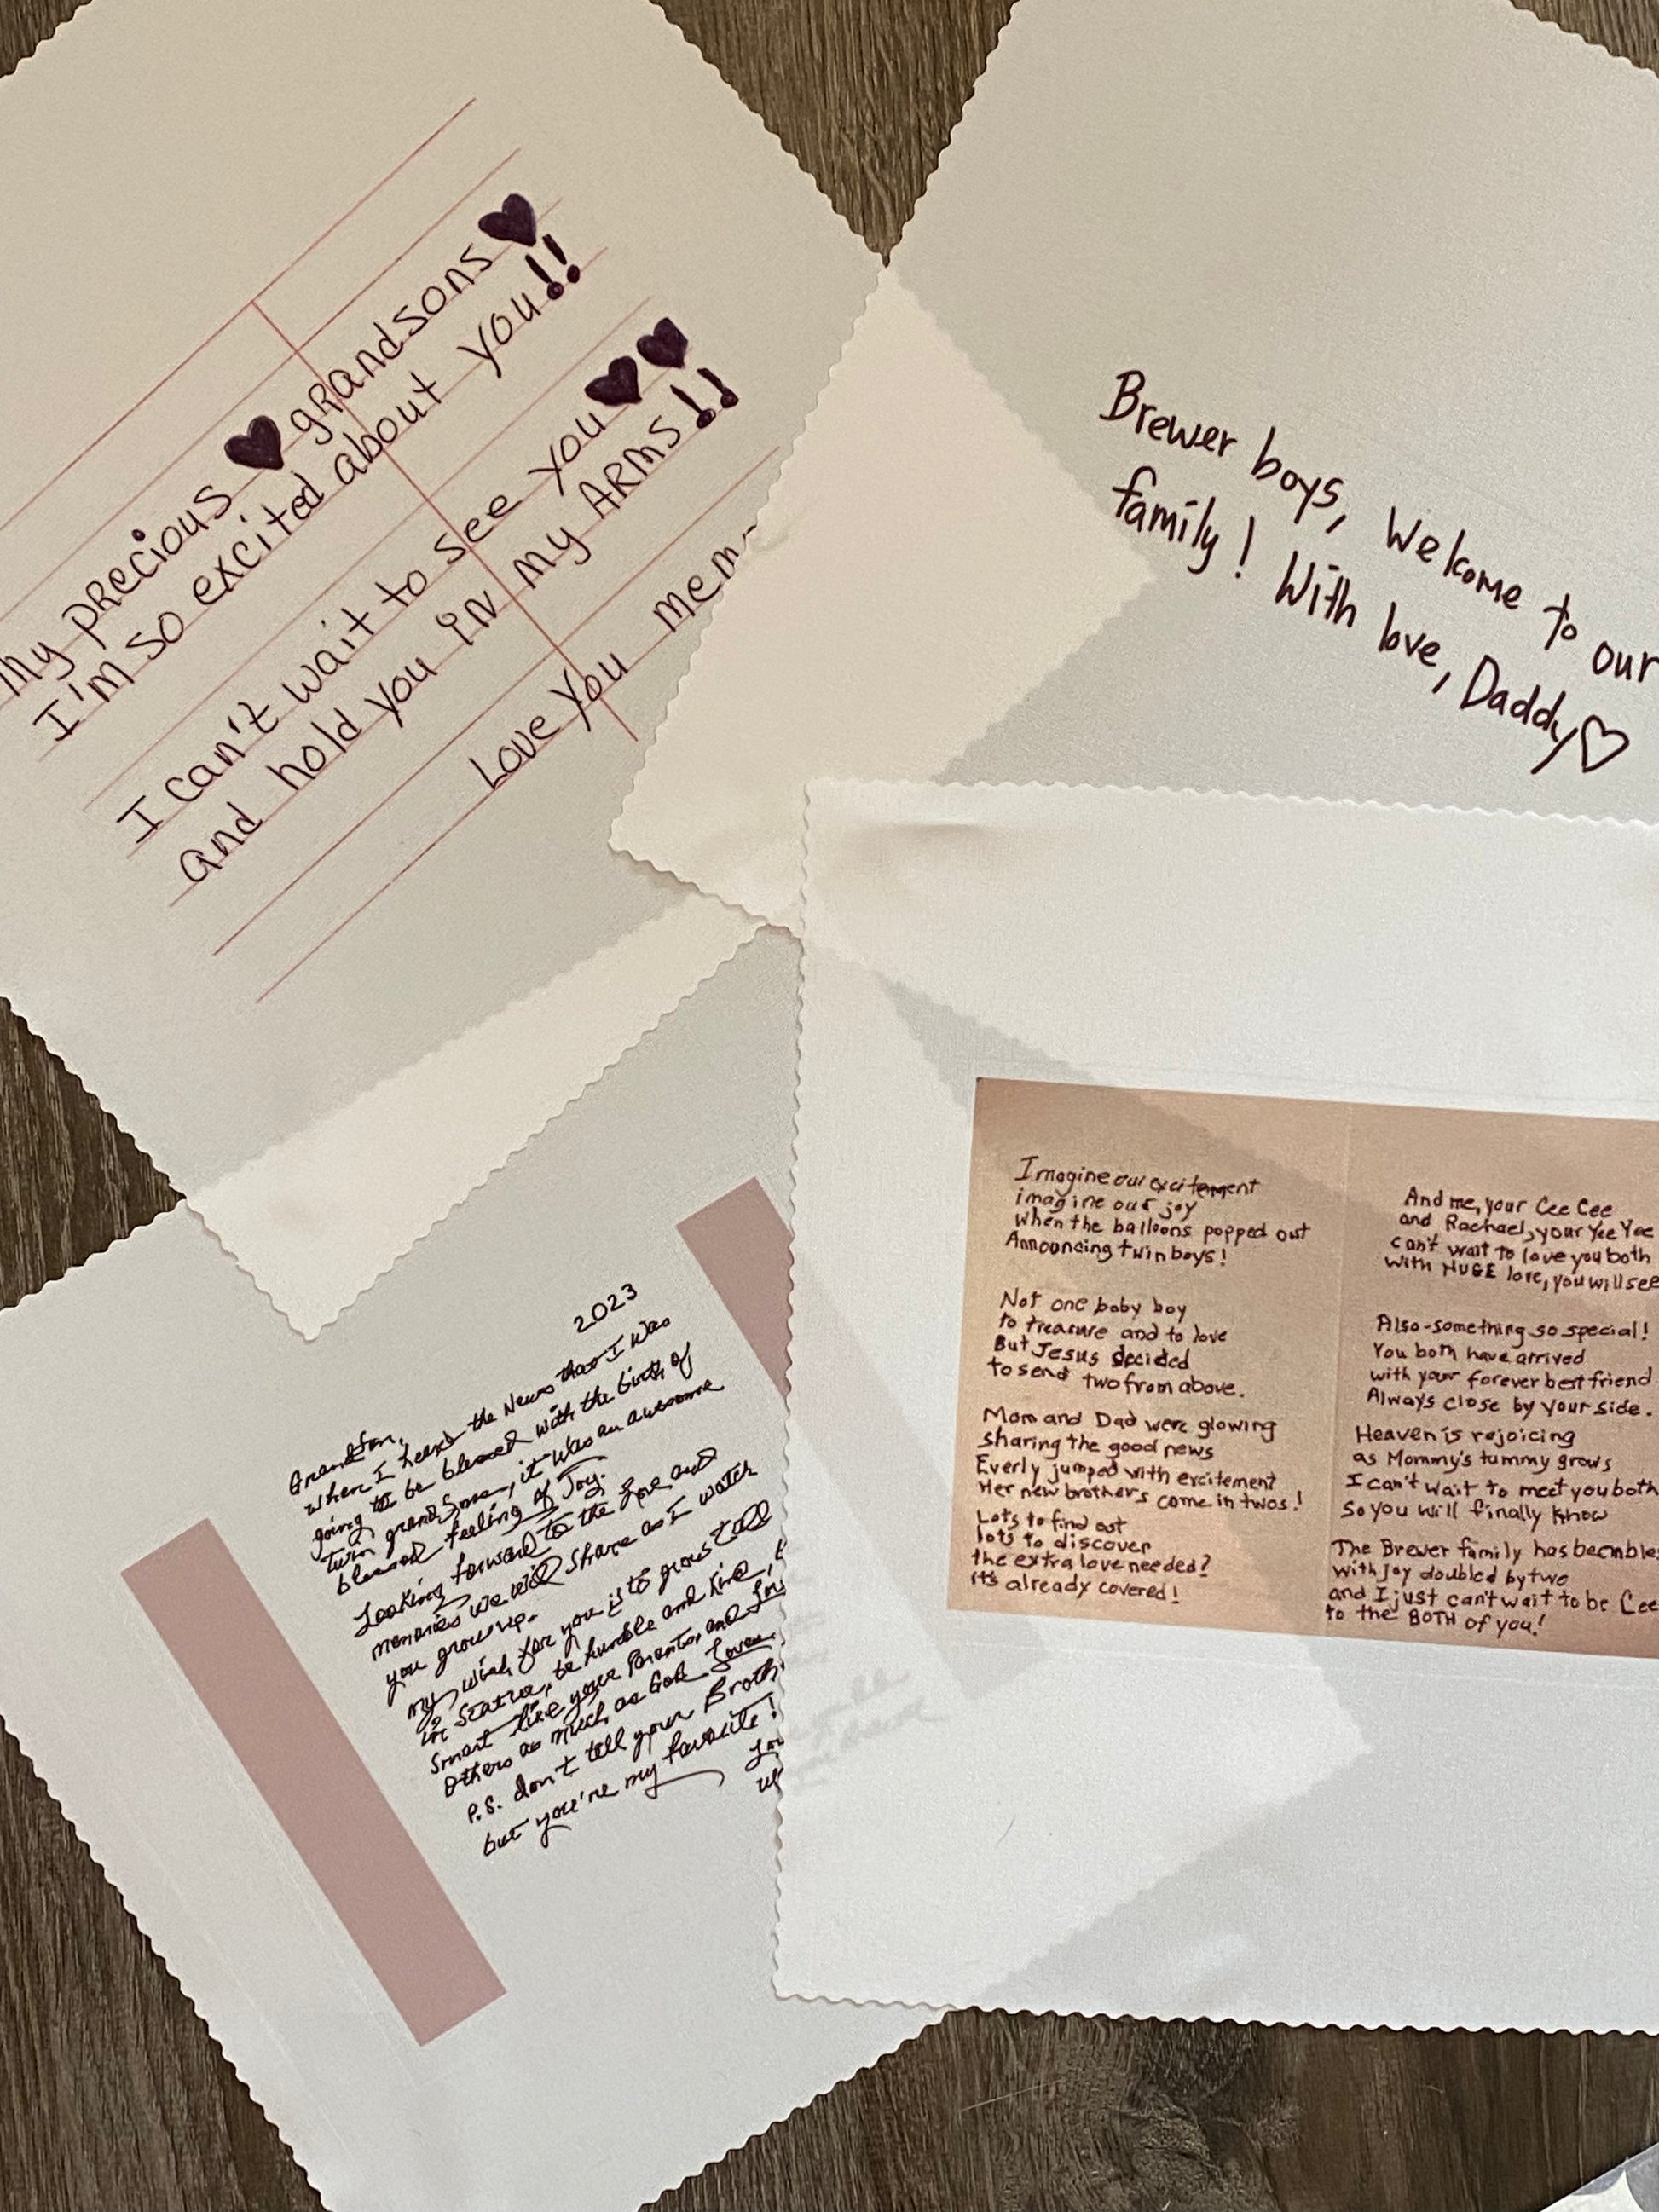 My precious ♥ grandsons ♥
I'm so excited about you!!
I can't wait to see you ♥♥
and hold you in my ARMS!!
Love you mem
Brewer boys, Welcome to our
family! With love, Daddy♡
2023
Grandson,
when I heard the News that I was
going to be blessed with the birth of
twin grandsons, it was an awesome
blessed feeling of Joy.
Looking forward to the love and
memories we will share as I watch
you grow up.
my wish for you is to grow tall
in statue, be humble and kind,
smart like your Parents, and Lov
others as much as God Loves
P.S. don't tell your Broth
but you're my favorite!
Imagine our excitement
imagine our joy
when the balloons popped out
Announcing twin boys!
Not one baby boy
to treasure and to love
But Jesus decided
to send two from above.
Mom and Dad were glowing
sharing the good news
Everly jumped with excitement
Her new brothers come in twos!
Lots to find out
lots to discover
the extra love needed?
it's already covered!
And me, your Cee Cee
and Rachael, your Yee Yee
can't wait to love you both
with HUGE love, you will see
Also-something so special!
You both have arrived
with your forever best friend
Always close by your side.
Heaven is rejoicing
as Mommy's tummy grows
I can't wait to meet you both
so you will finally know
The Brewer family has been bles
with joy doubled by two
and I just can't wait to be Cee
to the BOTH of you!